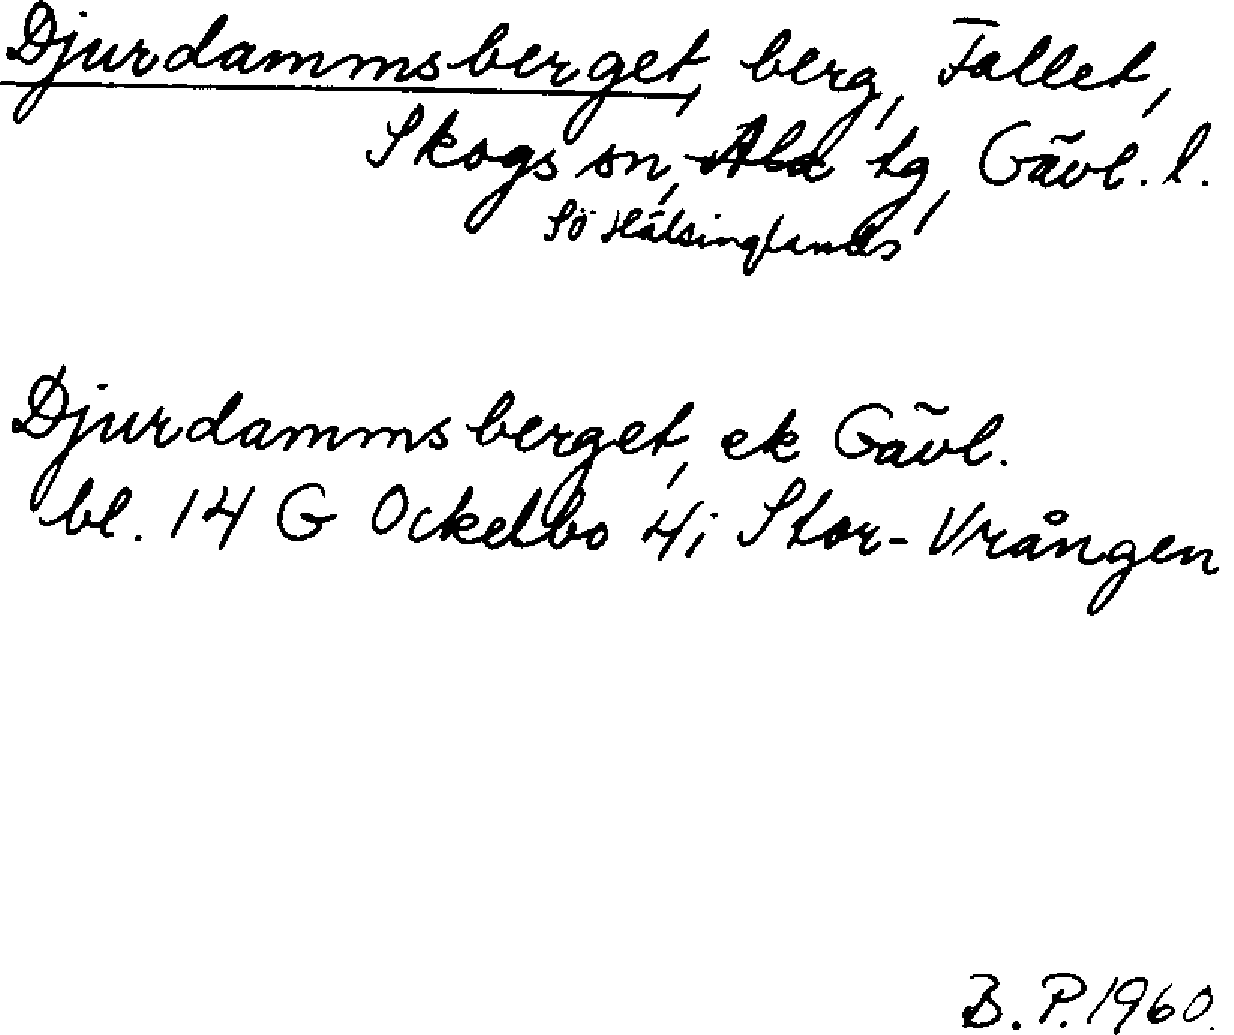 Djurdammsberget, berg, Fallet,
Skogs sn, Ala tg, Gävl. l.
Sö Hälsinglands
Djurdammsberget, ek Gävl.
bl. 14 G Ockelbo 4i Stor-Vrången
B. P. 1960.